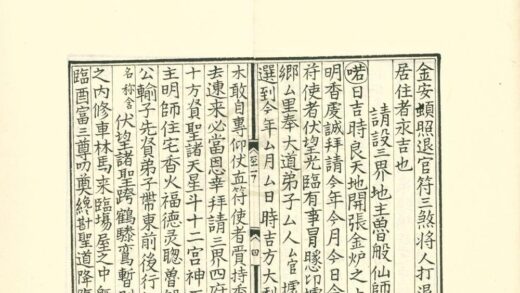 金安頓照退官符三煞將人打退
居住者永吉也
請設三界地主魯般仙師
日吉時良天地開張金炉之上
明香虔誠拜請今年今月今日今
符使者伏望光臨有事冒懇
鄉厶里奉大道弟子厶人厶官
選到今年厶月厶日時吉方大利
木敢自專仰仗血符使者賫持香
去連来必當恩幸拜請三界四府
十方賢聖諸天星斗十二宮神
主明師住宅香火福德灵聦魯
公輸子先賢弟子帶東前後行
名称舍伏望諸聖跨鶴驂鸞暫
之内修車秣馬来臨場屋之中
臨酉富三尊叨奠終斟聖道降
四